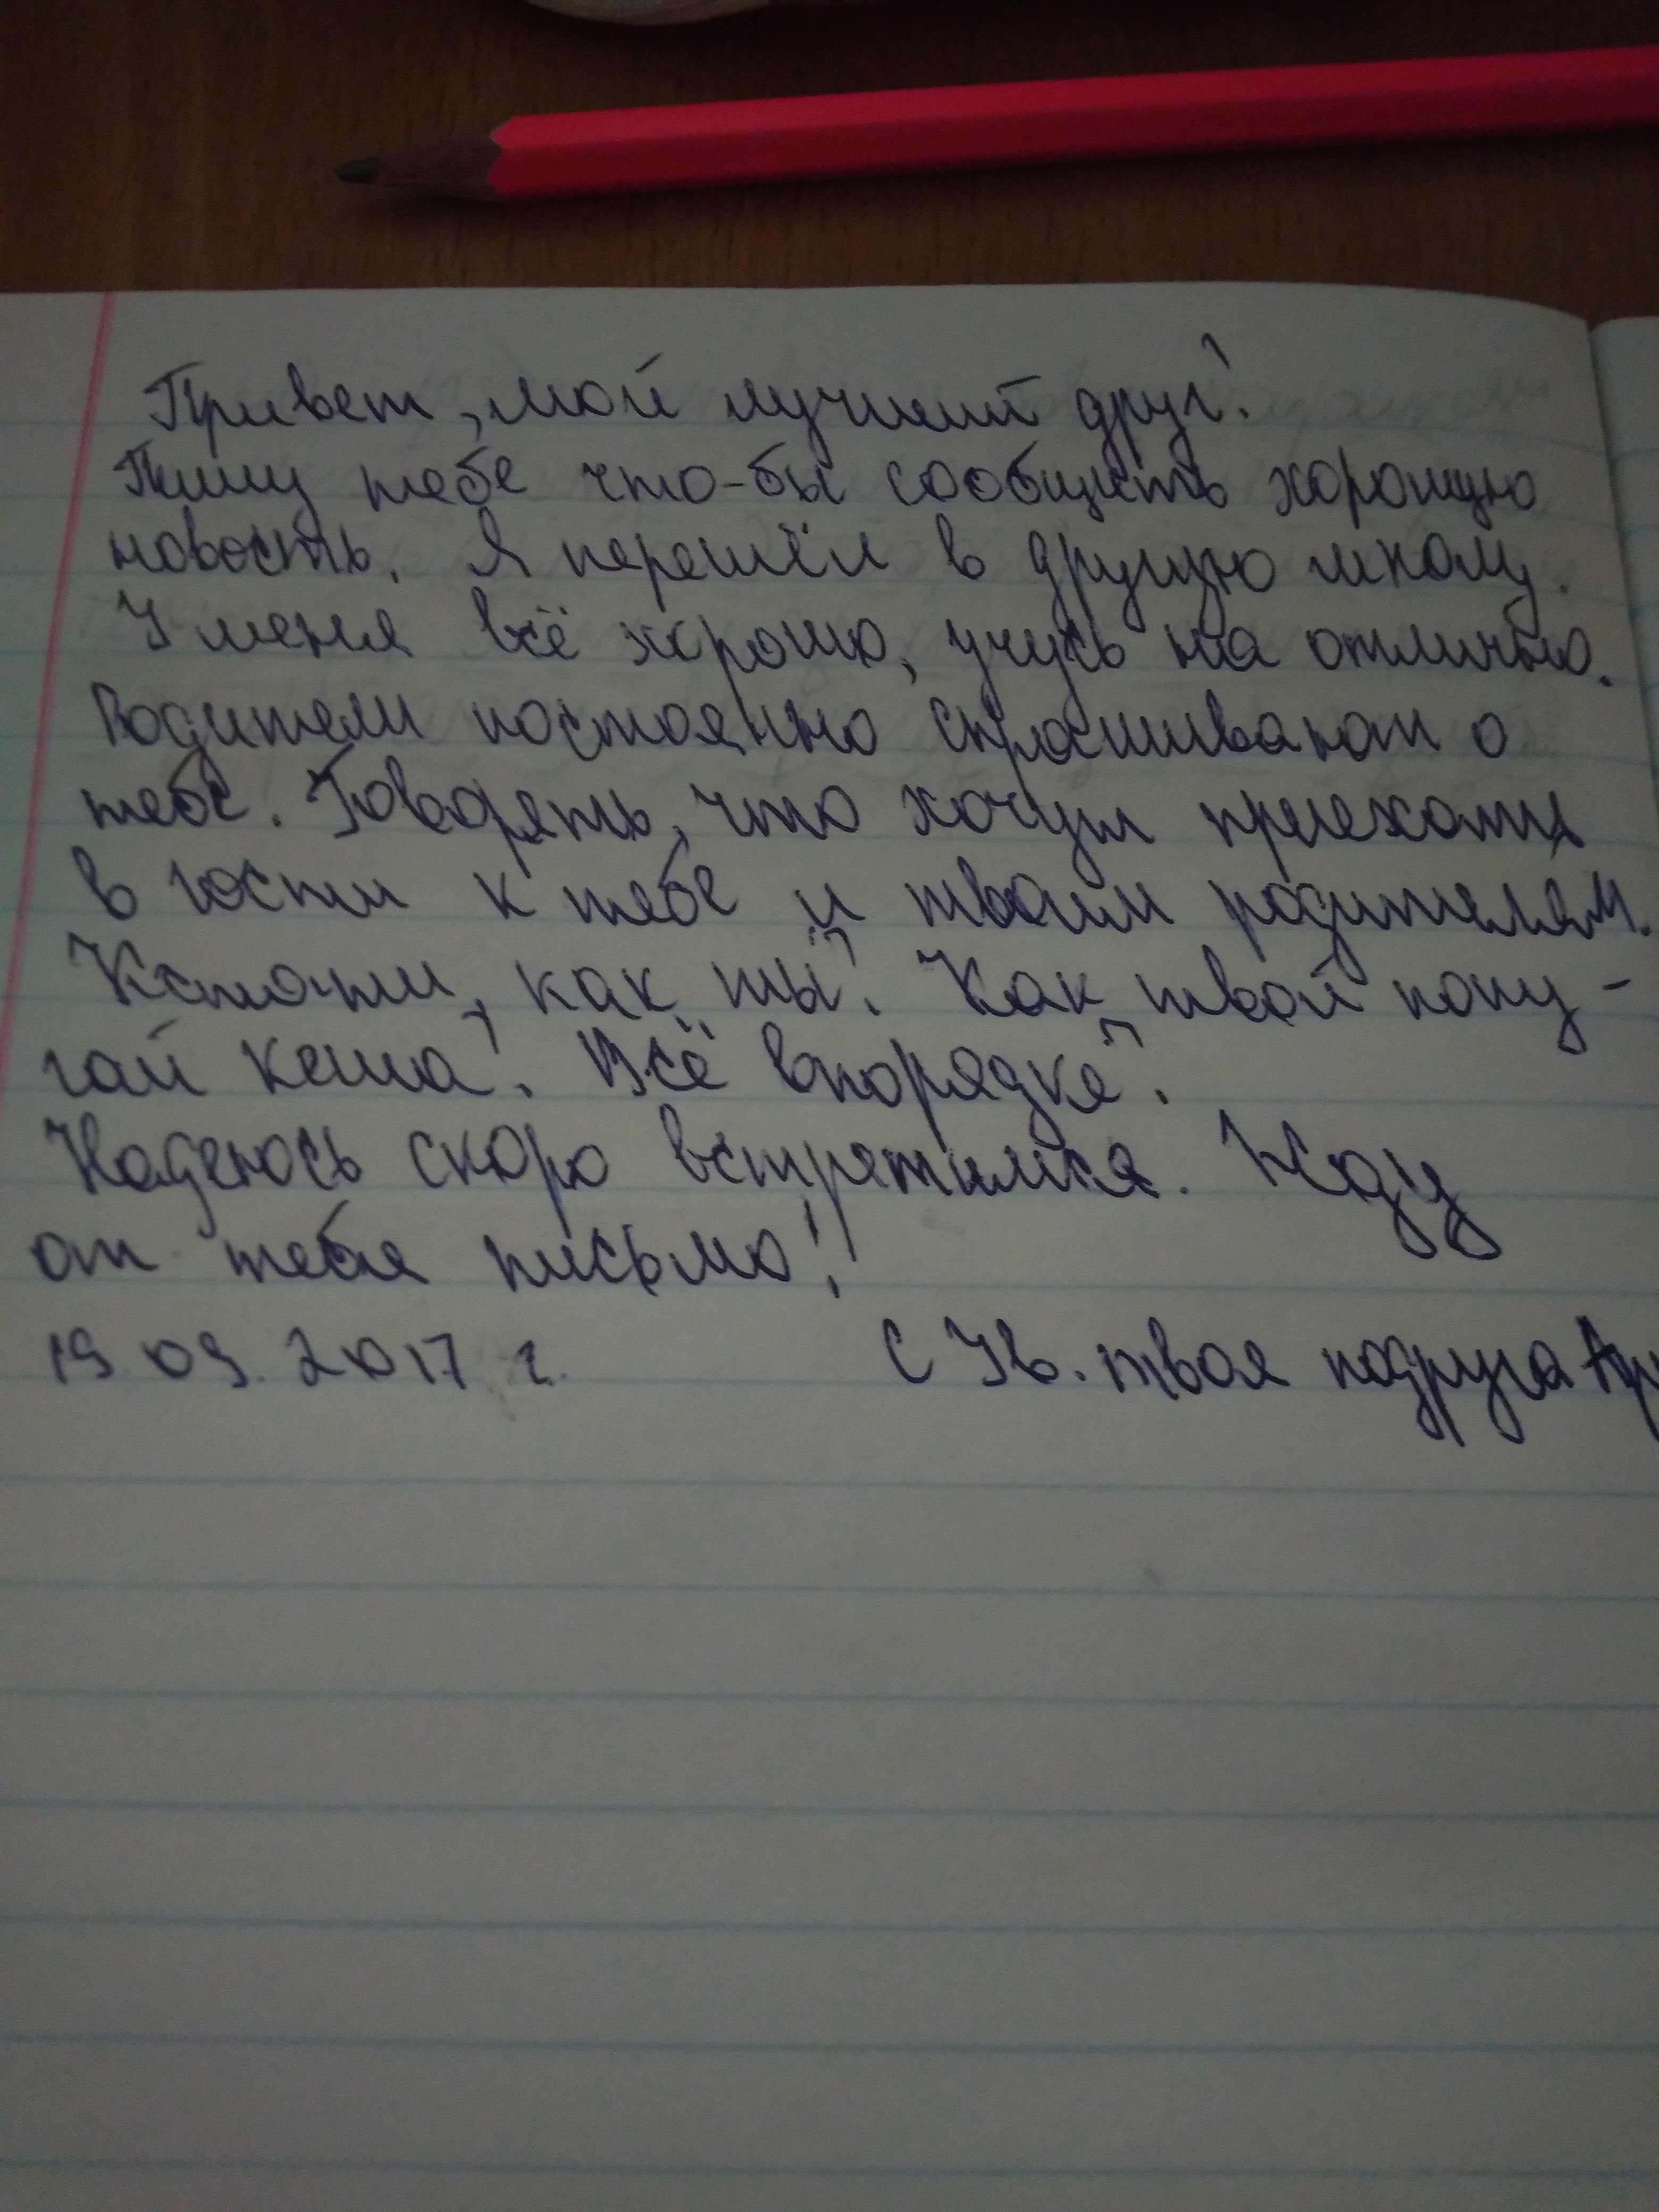 Привет, мой лучший друг!
Пишу тебе что-бы сообщить хорошую
новость. Я перешёл в другую школу.
У меня всё хорошо, учусь на отлично.
Родители постоянно спрашивают о
тебе. Говорять, что хочут приехать
в гости к тебе и твоим родителям.
Кстати, как ты? Как твой попу-
гай кеша? Всё впорядке?
Надеюсь скоро встретимся. Жду
от тебя письмо!
19.09.2017 г. С Ув. твоя подруга